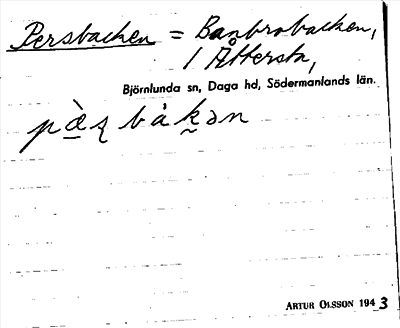 Persbacken = Banbrobacken,
1 Åttersta,
Björnlunda sn, Daga hd, Södermanlands län.
pæ̀ʂbákən
ARTUR OLSSON 1943